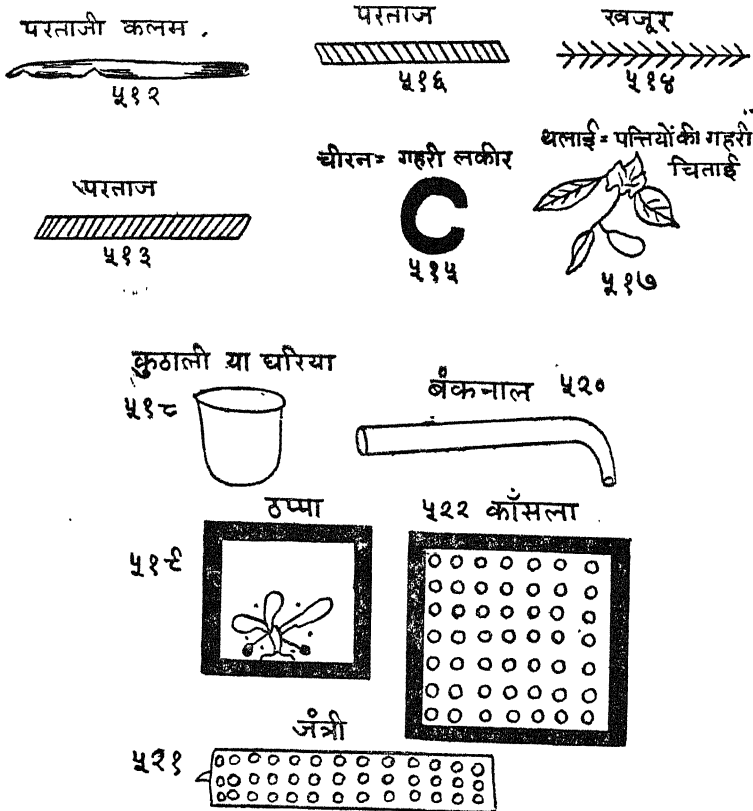 परताजी कलम .
५१२
परताज
५१६
खजूर
५१४
परताज
५१३
चीरन = गहरी लकीर
५१५
थलाई = पत्तियों की गहरी
चिताई
५१७
कुठाली या घरिया
५१८
बंकनाल ५२०
ठप्पा
५१९
५२२ काँसला
जंत्री
५२१